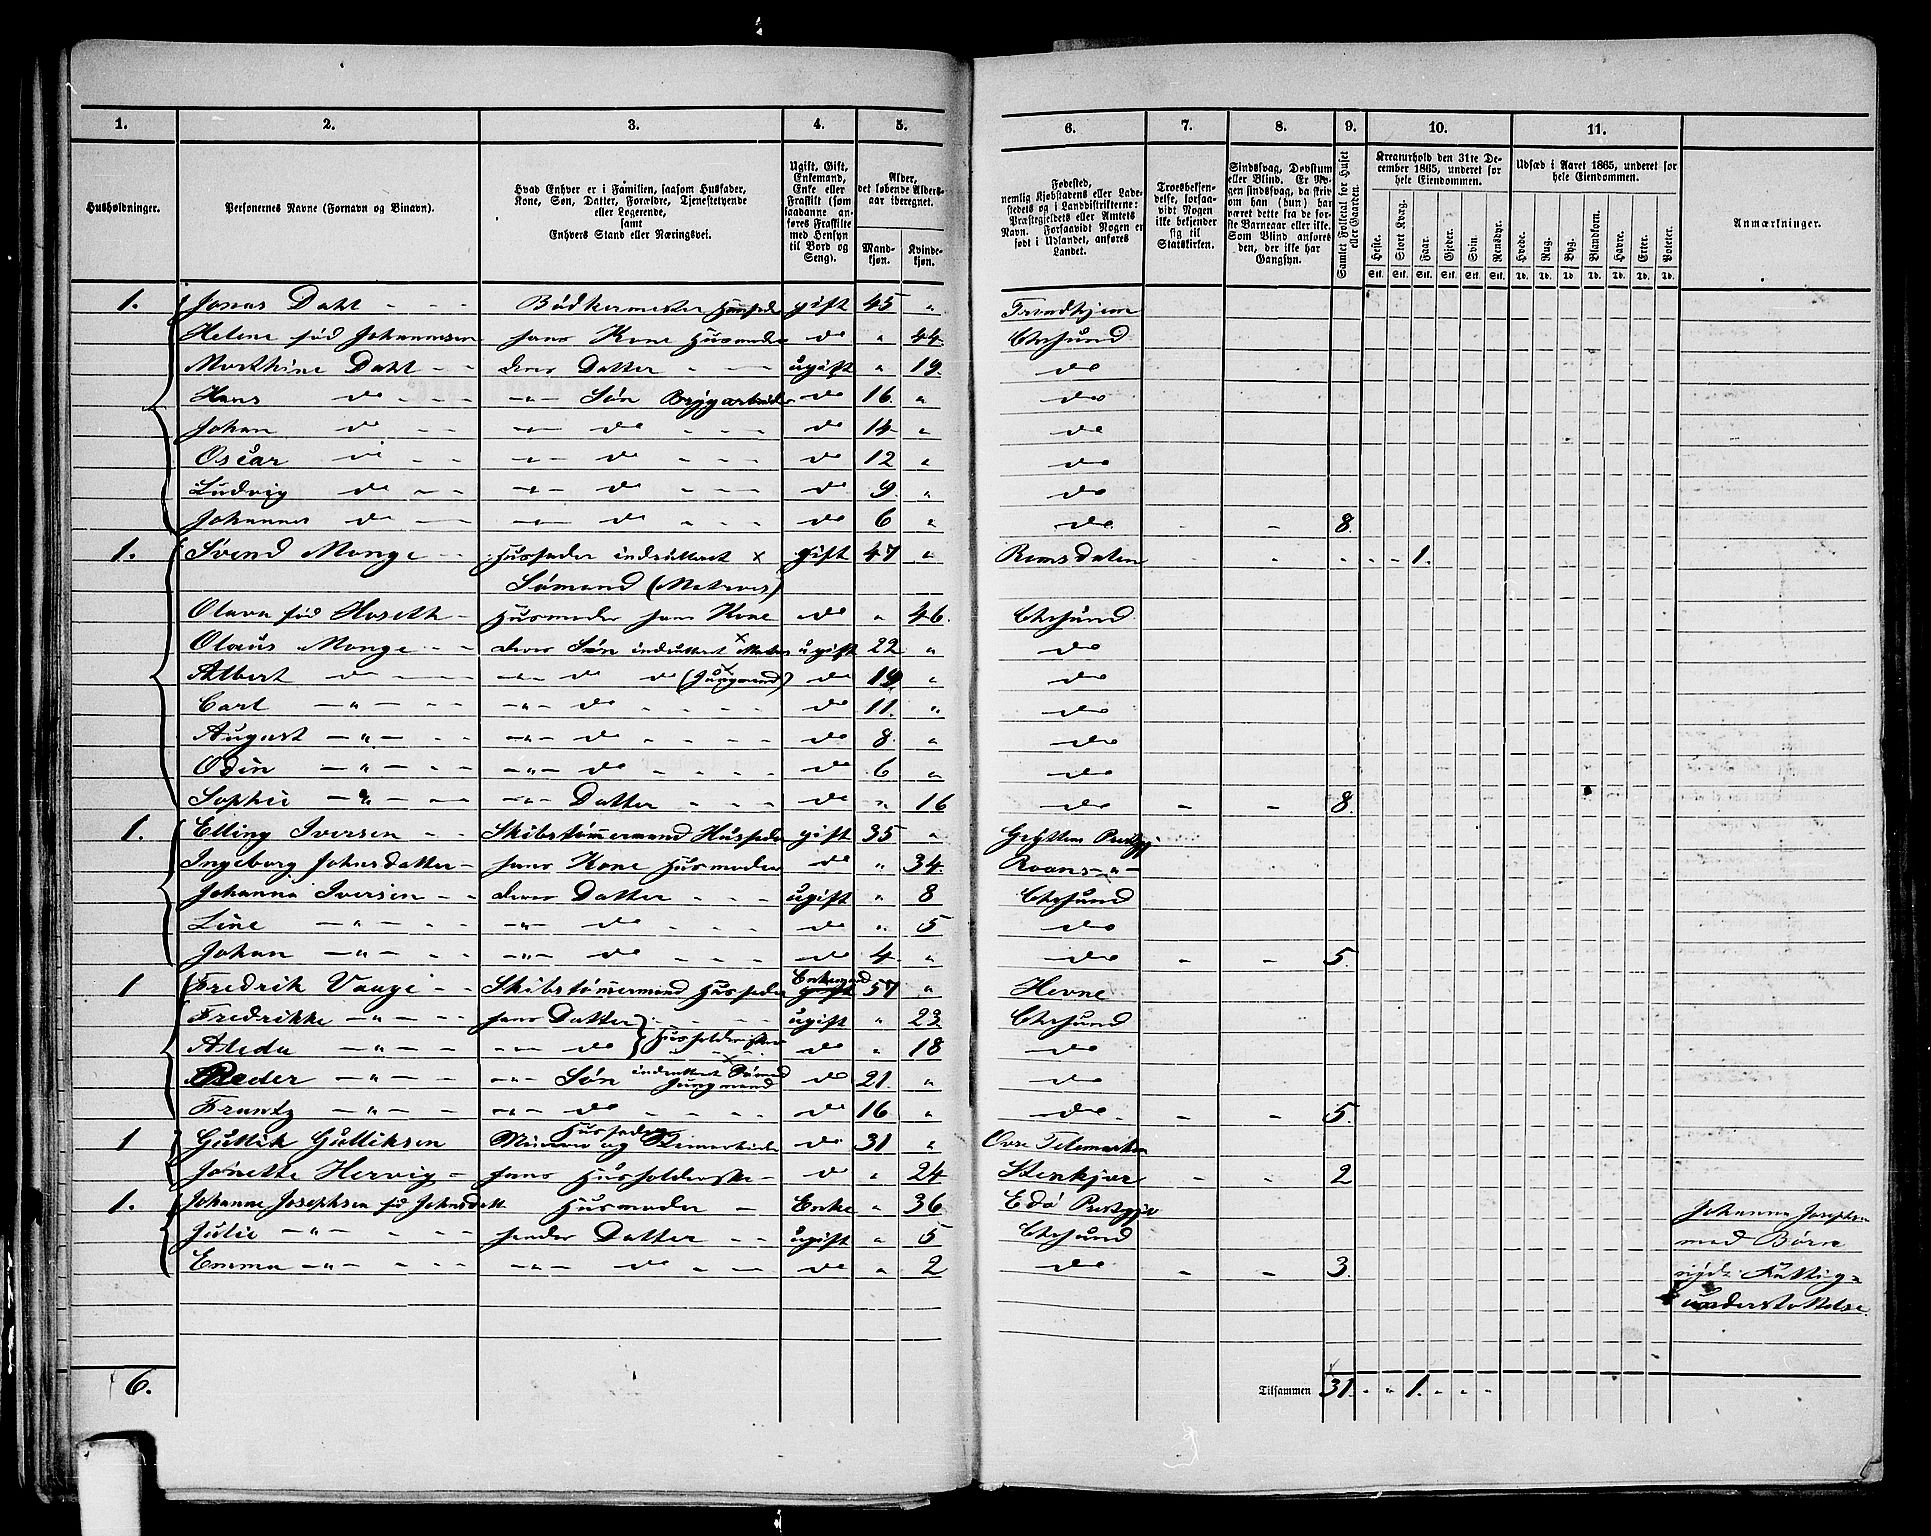 1. 2. 3. 4. 5. 6. 7. 8. 9. 10. 11.
Husholdninger.
Personernes Navne (Fornavn og Binavn).
Hvad Enhver er i Familien, saasom Husfader,
Kone, Søn, Datter, Forældre, Tjenestetyende
eller Logerende,
samt
Enhvers Stand eller Næringsvei.
Ugift, Gift,
Enkemand,
Enke eller
Fraskilt (som
saadanne an-
føres Fraskilte
med Hensyn
til Bord og
Seng).
Alder,
det løbende Alders-
aar iberegnet.
Mand-
kjøn.
Kvinde-
kjøn.
Fødested,
nemlig Kjøbstadens eller Lade-
stedets og i Landdistrikterne:
Præstegjeldets eller Amtets
Navn. Forsaavidt Nogen er
født i Udlandet, anføres
Landet.
Troesbekjen-
delse, forsaa-
vidt Nogen
ikke bekjender
sig til
Statskirken.
Sindssvag, Døvstum
eller Blind. Er No-
gen sindssvag, da skriv
om han (hun) har
været dette fra de før-
ste Barneaar eller ikke.
Som Blind anføres
den, der ikke har
Gangsyn.
Samlet Folketal for Huset
eller Gaarden.
Kreaturhold den 31te De-
cember 1865, underet for
hele Eiendommen.
Heste. Stort Kvæg. Faar. Gjeder. Svin. Rensdyr.
Stk. Stk. Stk. Stk. Stk. Stk.
Udsæd i Aaret 1865, underet for
hele Eiendommen.
Hvede. Rug. Byg. Blandkorn. Havre. Erter. Poteter.
Td. Td. Td. Td. Td. Td. Td.
Anmærkninger.
1. Jonas Dahl - - - Bødkermester Husfader gift 45 " Trondhjem
Helene fød Johannesen hans Kone Husmoder do " 44 Chrsund
Morthine Dahl - - deres Datter - - - ugift " 19 do
Hans do - - - -"- Søn Brygarbeider do 16 " do
Johan do - - -"- do - - - do 14 " do
Oscar do - - -"- do - - - do 12 " do
Ludvig do - - -"- do - - - do 9 " do
Johannes do - - -"- do - - - do 6 " do - - 8
1. Svend Monge - - Husfader indrulleret x gift 47 " Romsdalen - - - - - 1.
Sømand (Matros)
Olava fød Hoseth - Husmoder hans Kone do " 46. Chrsund
Olaus Monge - - deres Søn indrulleret x Matros ugift 22 " do
Albert do - - -"- do do (Jungmand) do 19 " do
Carl -"- - - -"- do - - - do 11. " do
August -"- - - -"- do - - - do 8. " do
Odin -"- - - -"- do - - - do 6 " do
Sophie -"- - - -"- Datter - - do " 16 do - - 8
1. Elling Iversen - - Skibstømmermand Husfader gift 35 " Gryttens Prestgj
Ingeborg Johnsdatter - hans Kone Husmoder do " 34. Roans -"-
Johanna Iversen - - deres Datter - - - ugift " 8 Chrsund
Line -"- - - -"- do - - - do " 5 do
Johan -"- - - -"- do - - - do 4. " do - - 5.
1 Fredrik Vange - - Skibstømmermand Husfader Enkemand gift 57 " Hevne
Fredrikke -"- hans Datter - - - ugift " 23 Chrsund
Aleda -"- -"- do Husholderske do " 18 do
Peder -"- -"- Søn indrullert x Sømand Jungmand do 21. " do
Frantz -"- -"- do - - - do 16 " do - - 5.
1 Guttik Guttiksen Husfader Murer og do 31 " Øvre Telemarken
Jonette Hervig - hans Husholderske - do " 24 Stenkjær - - 2
1. Johanne Josephsen fød Johnsdatt Husmoder - Enke " 36 Edø Prestgje
Julie -"- - hendes Datter - - ugift " 5 Chrsund
Emma -"- - - -"- do - - - do " 2 do - - 3.
Johanna Josephsen
med Børn
nyde Fattig-
understøttelse
6.
Tilsammen 31. " " 1. " " "